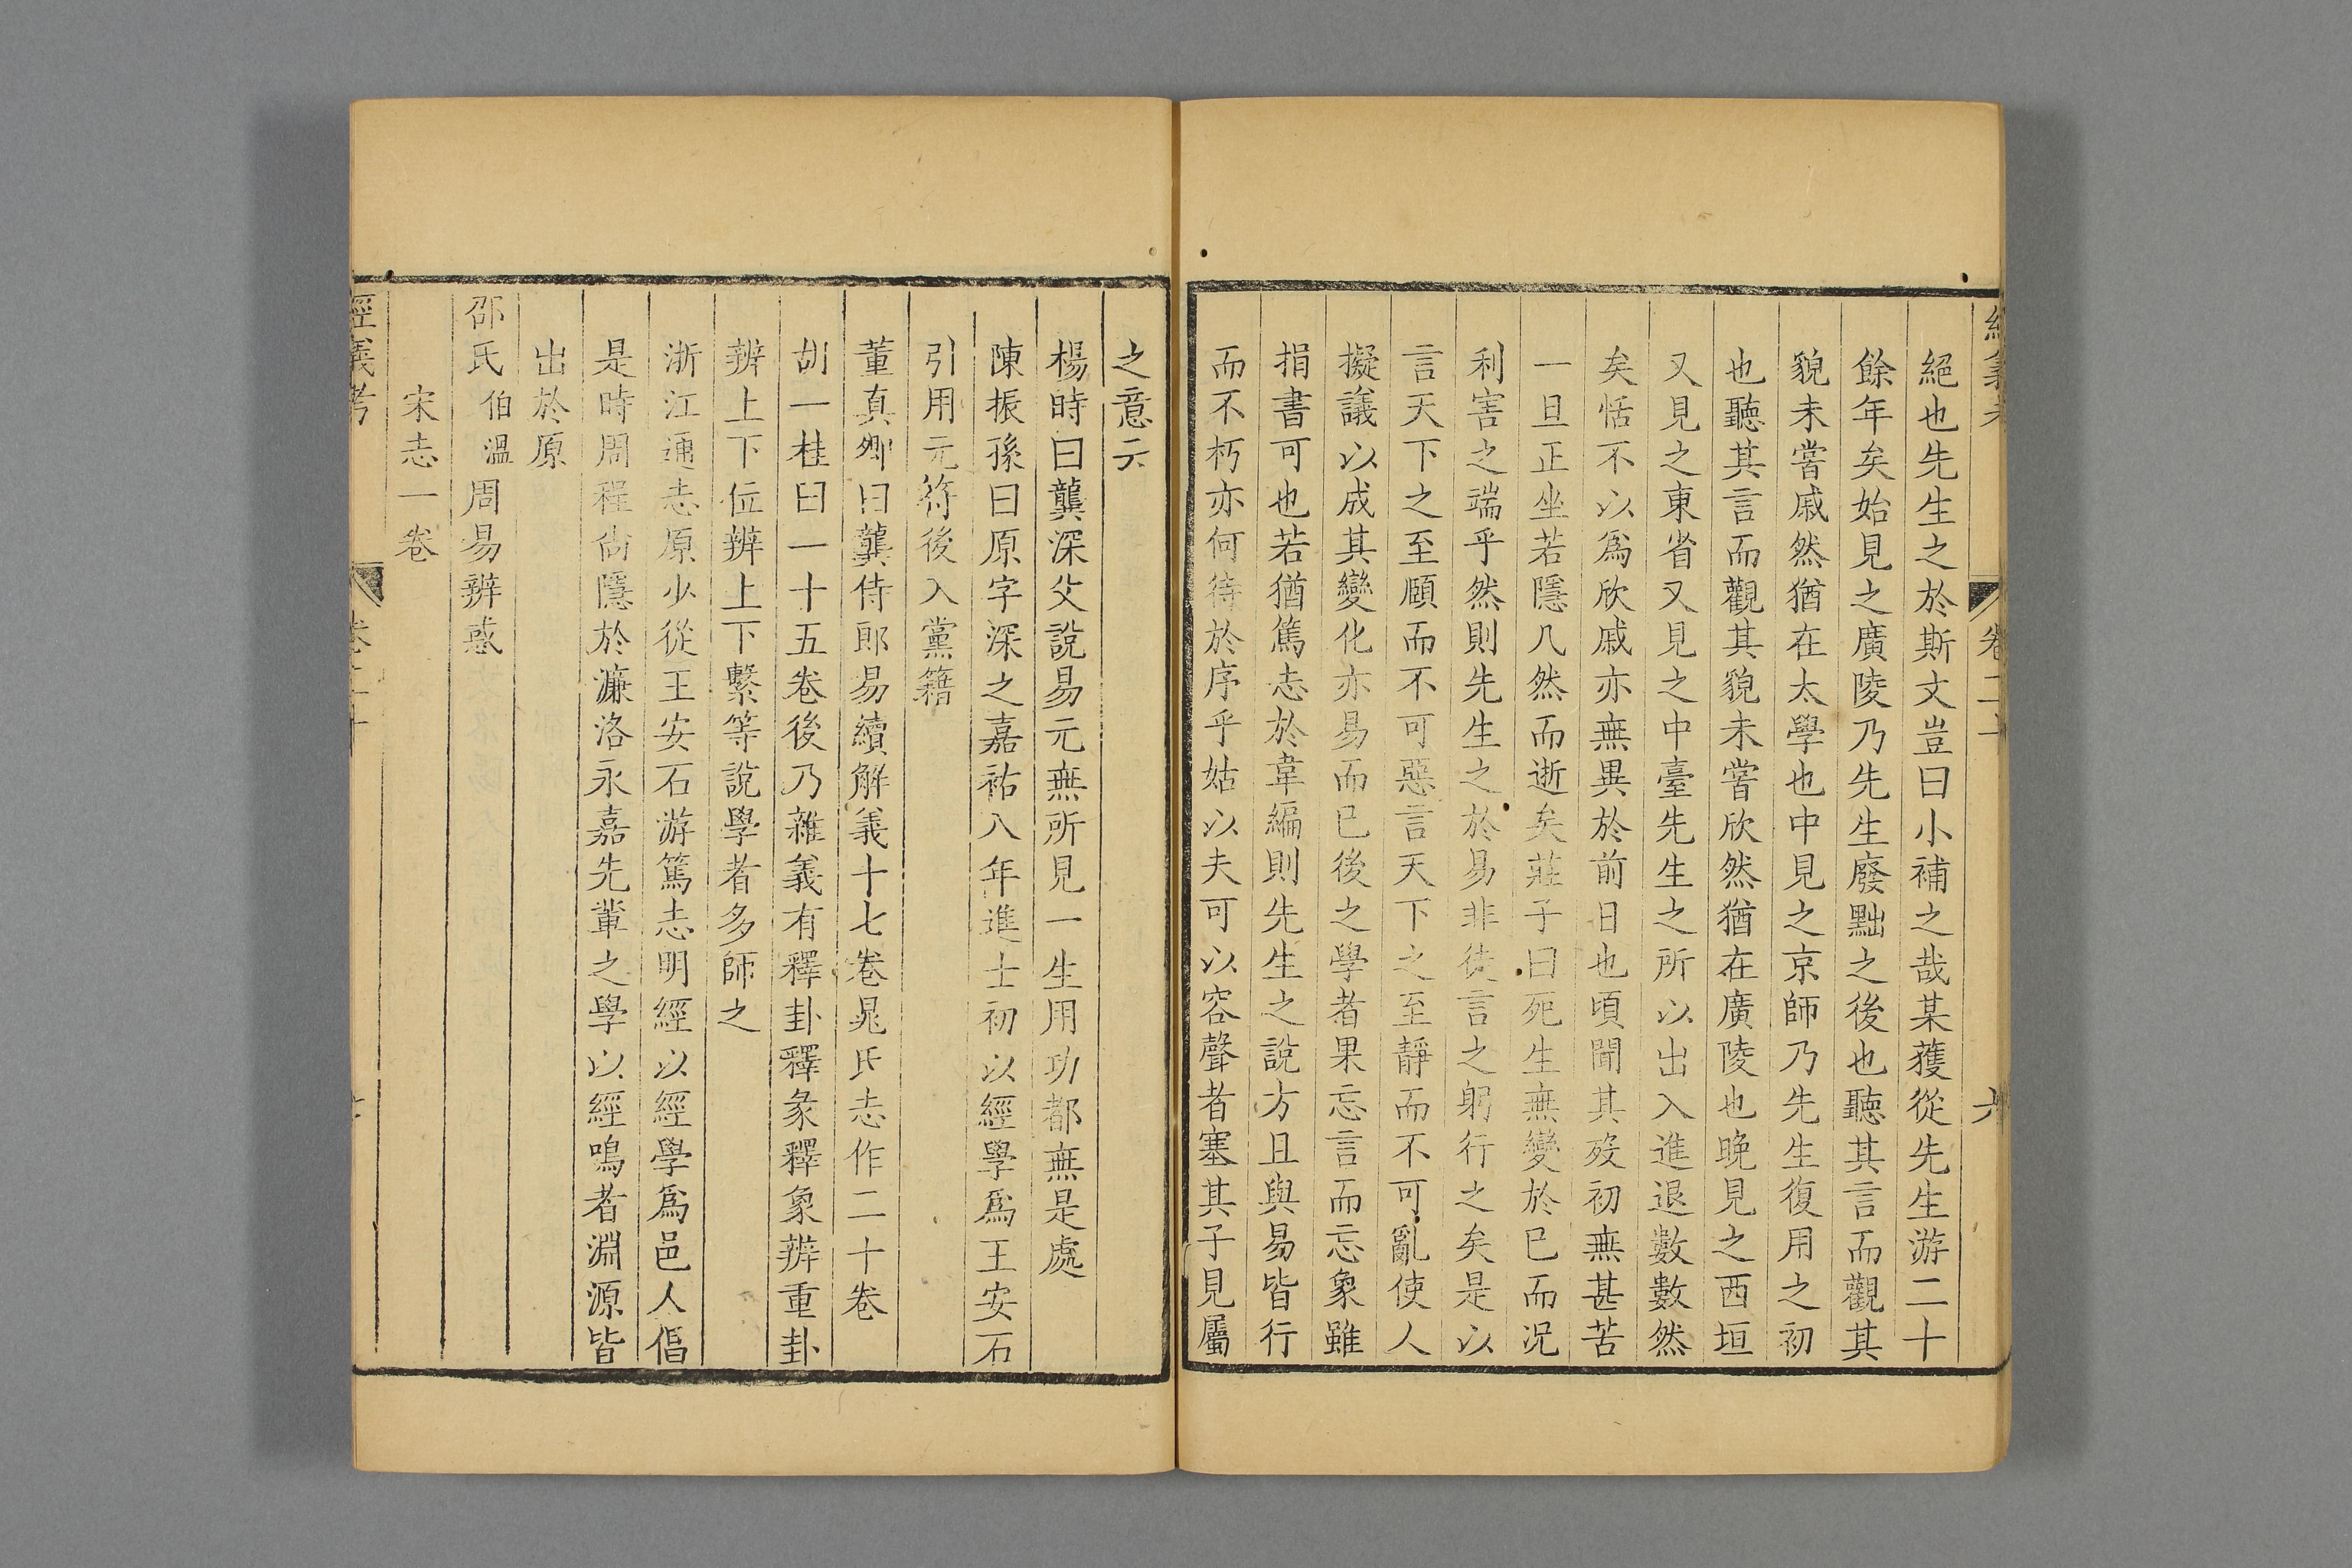 經義考 卷二十 六
絕也先生之於斯文豈曰小補之哉某獲從先生游二十
餘年矣始見之廣陵乃先生廢黜之後也聽其言而觀其
貌未嘗戚然猶在太學也中見之京師乃先生復用之初
也聽其言而觀其貌未嘗欣然猶在廣陵也晚見之西垣
又見之東省又見之中臺先生之所以出入進退數數然
矣恬不以爲欣戚亦無異於前日也頃聞其歿初無甚苦
一旦正坐若隱几然而逝矣莊子曰死生無變於已而況
利害之端乎然則先生之於易非徒言之躬行之矣是以
言天下之至賾而不可惡言天下之至靜而不可亂使人
擬議以成其變化亦易而已後之學者果忘言而忘象雖
捐書可也若猶篤志於韋編則先生之說方且與易皆行
而不朽亦何待於序乎姑以夫可以容聲者塞其子見屬
之意云
楊時曰龔深父說易元無所見一生用功都無是處
陳振孫曰原字深之嘉祐八年進士初以經學爲王安石
引用元符後入黨籍
董真卿曰龔侍郎易續解義十七卷晁氏志作二十卷
胡一桂曰一十五卷後乃雜義有釋卦釋彖釋象辨重卦
辨上下位辨上下繫等說學者多師之
浙江通志原少從王安石游篤志明經以經學爲邑人倡
是時周程尙隱於濂洛永嘉先輩之學以經鳴者淵源皆
出於原
邵氏伯溫周易辨惑
宋志一卷
經義考 卷二十